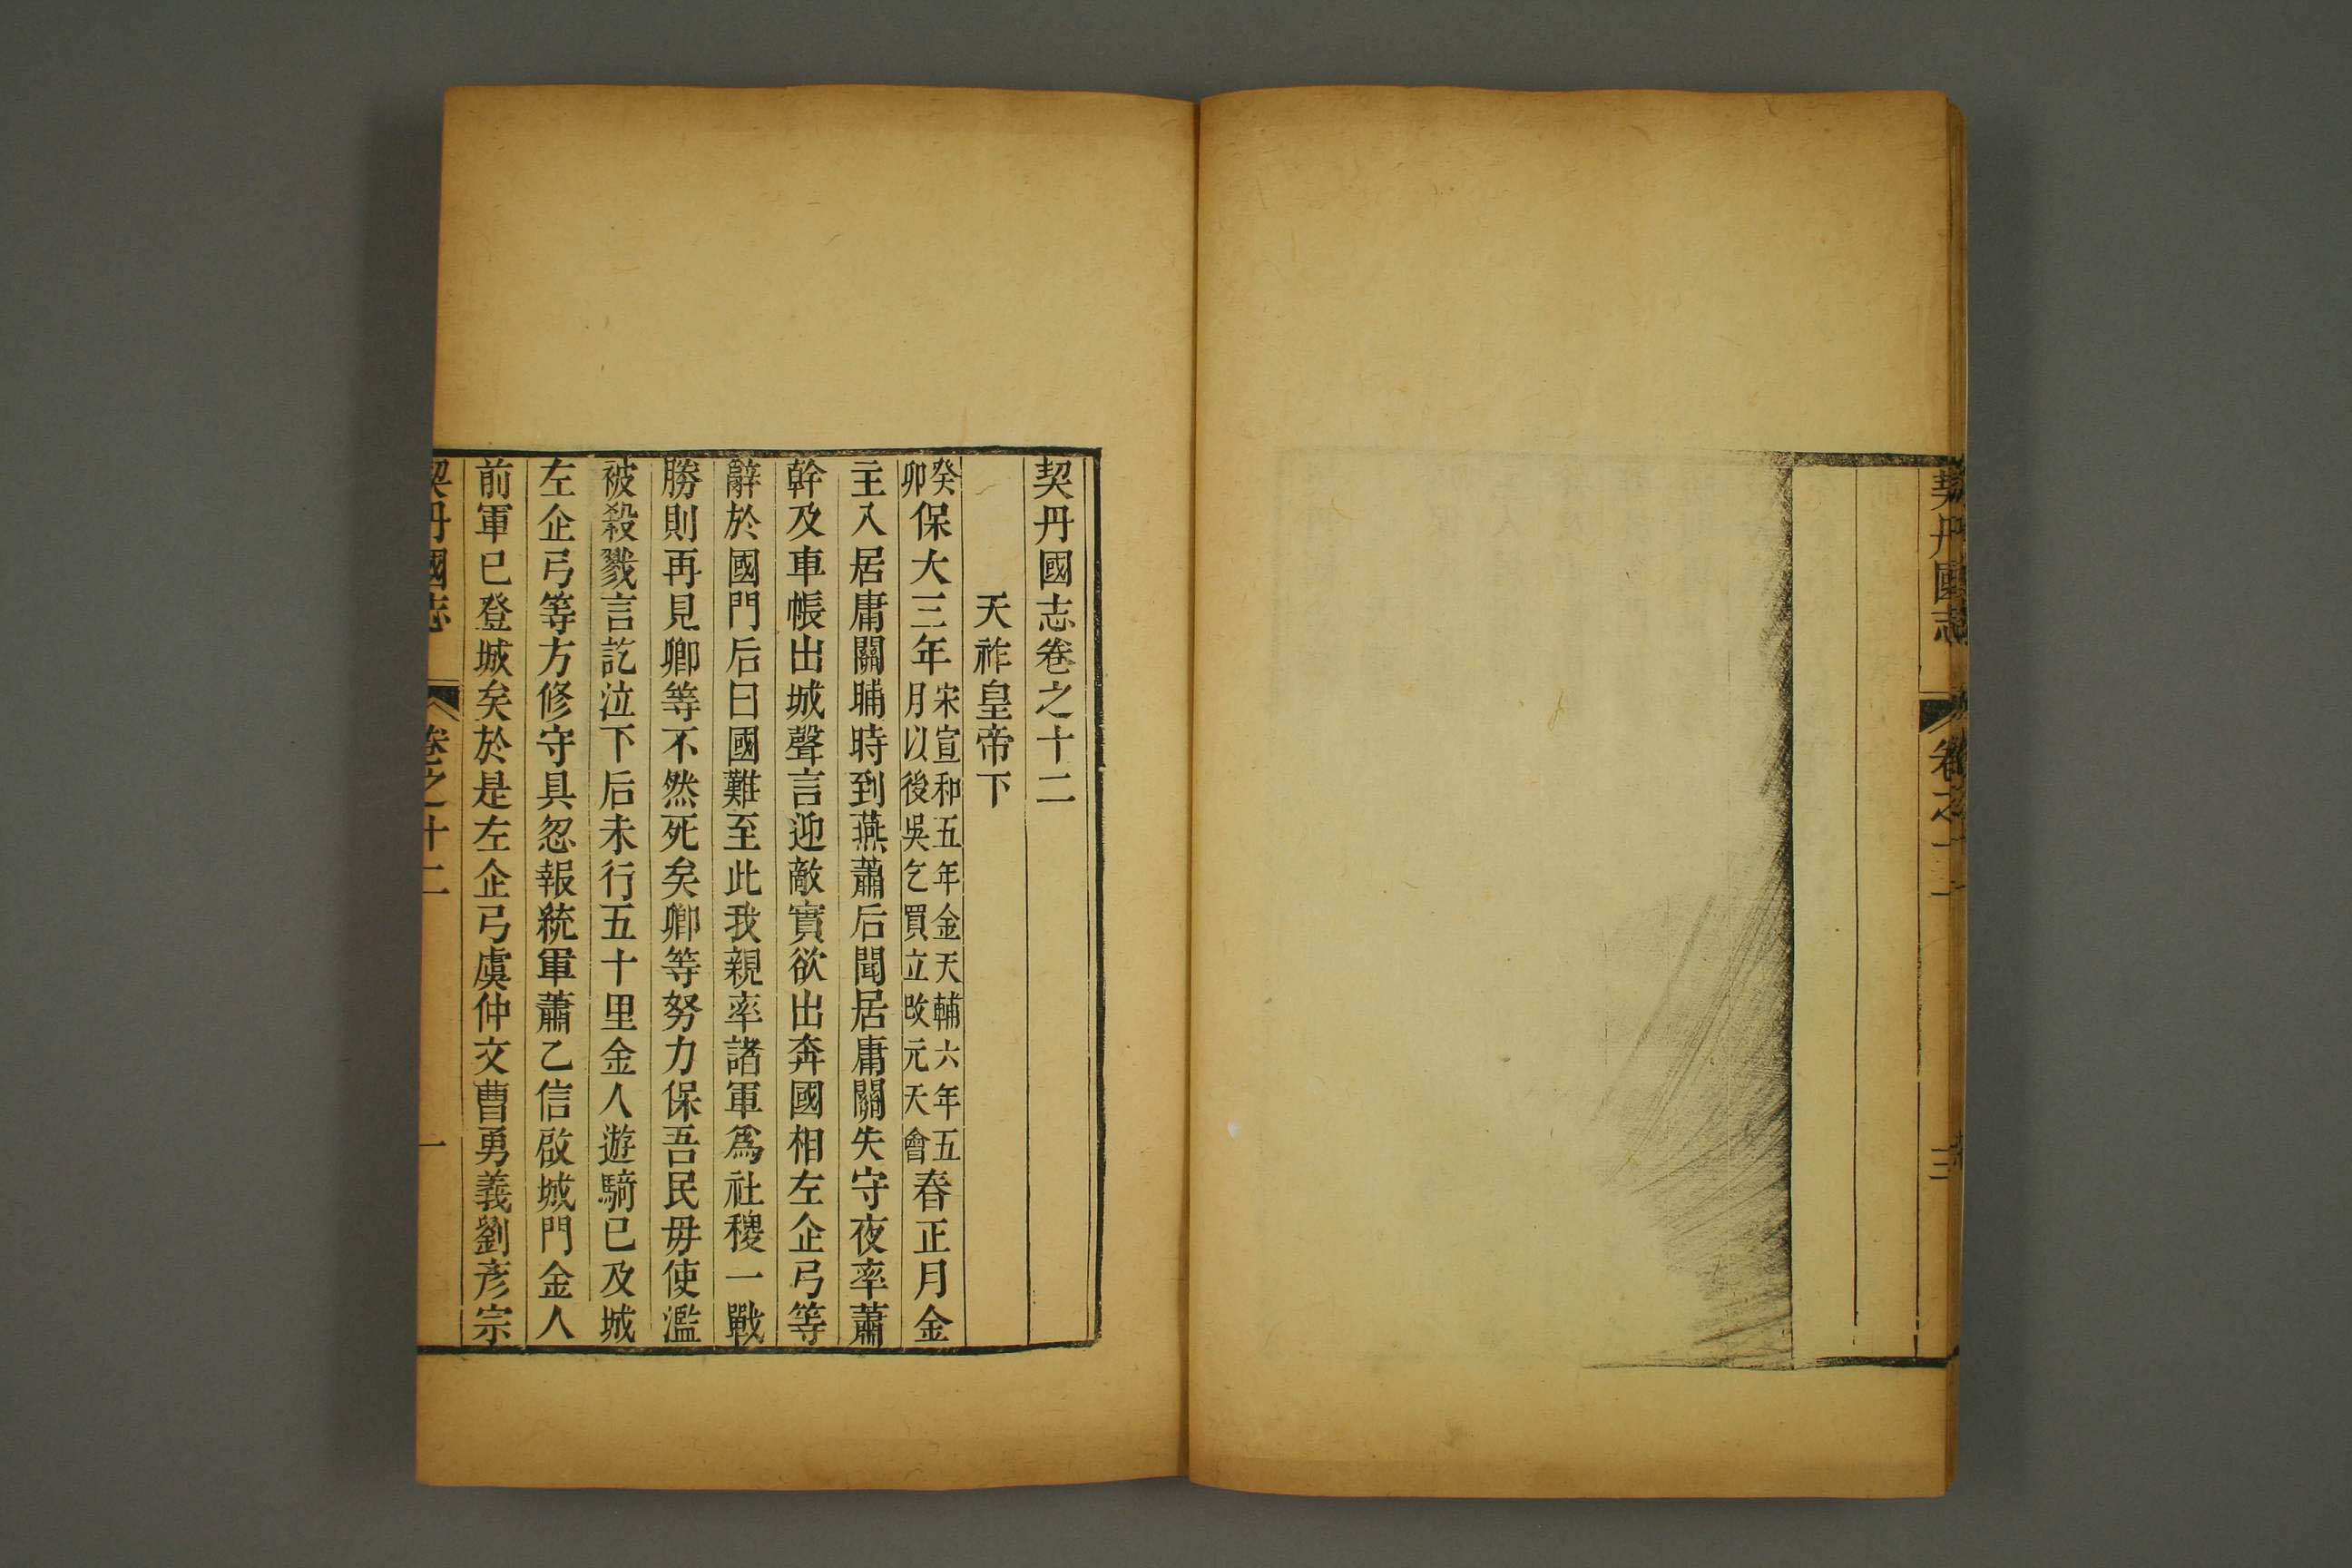 契丹國志
卷之十一
契丹國志卷之十二
天祚皇帝下
癸卯保大三年宋宣和五年金天輔六年五月以後吳乞買立改元天會春正月金
主入居庸關晡時到燕蕭后聞居庸關失守夜率蕭
幹及車帳出城聲言迎敵實欲出奔國相左企弓等
辭於國門后曰國難至此我親率諸軍爲社稷一戰
勝則再見卿等不然死矣卿等努力保吾民毋使濫
被殺戮言訖泣下后未行五十里金人遊騎已及城
左企弓等方修守具忽報統軍蕭乙信啟城門金人
前軍已登城矣於是左企弓虞仲文曹勇義劉彥宗
契丹國志
卷之十二
一